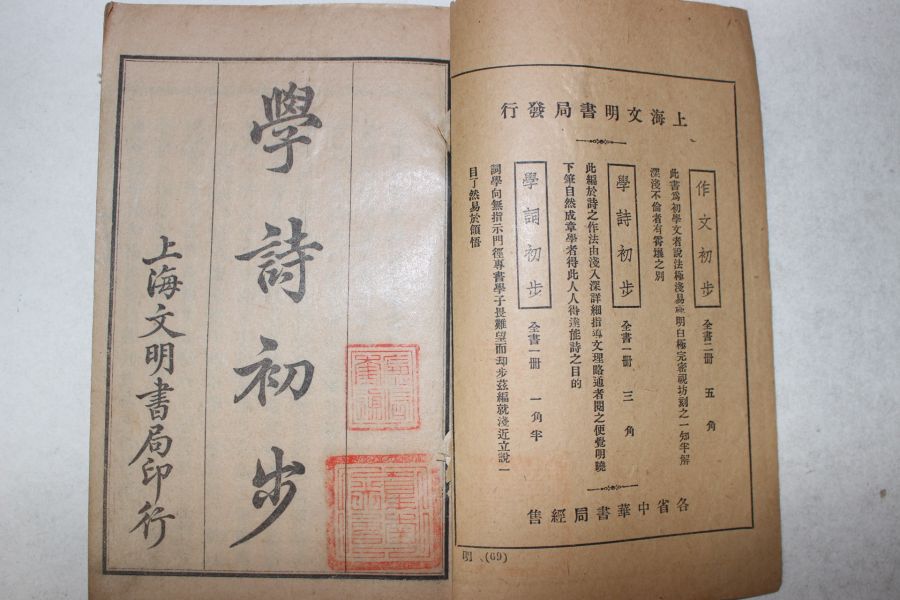 上海文明書局發行
作文初步 全書二冊 五角
此書爲初學文者說法極淺易極明白極完密視坊刻之一知半解
深淺不倫者有霄壤之別
學詩初步 全書一冊 三角
此編於詩之作法由淺入深詳細指導文理略通者閱之便覺明曉
下筆自然成章學者得此人人得達能詩之目的
學詞初步 全書一冊 一角半
詞學向無指示門徑專書學子畏難望而却步茲編就淺近立說一
目了然易於領悟
各省中華書局經售
明、(69)
學詩初步
上海文明書局印行